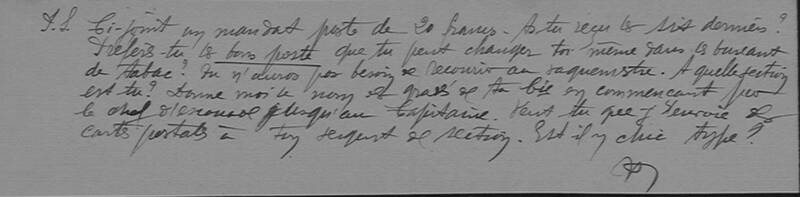 P.S. Ci-joint un mandat poste de 20 francs. As-tu reçu les dix derniers?
Préfères-tu les bons poste que tu peut changer toi même dans les bureaux
de tabac? Tu n'auras pas besoin de recourir au vaguemestre. A quelle section
est-tu? Donne moi le nom et grade de ta Cie en commençant par
le chef d'escouade jusqu'au Capitaine. Veut tu que j'envoie des
cartes postales à ton sergent de section. Est il un chic type?